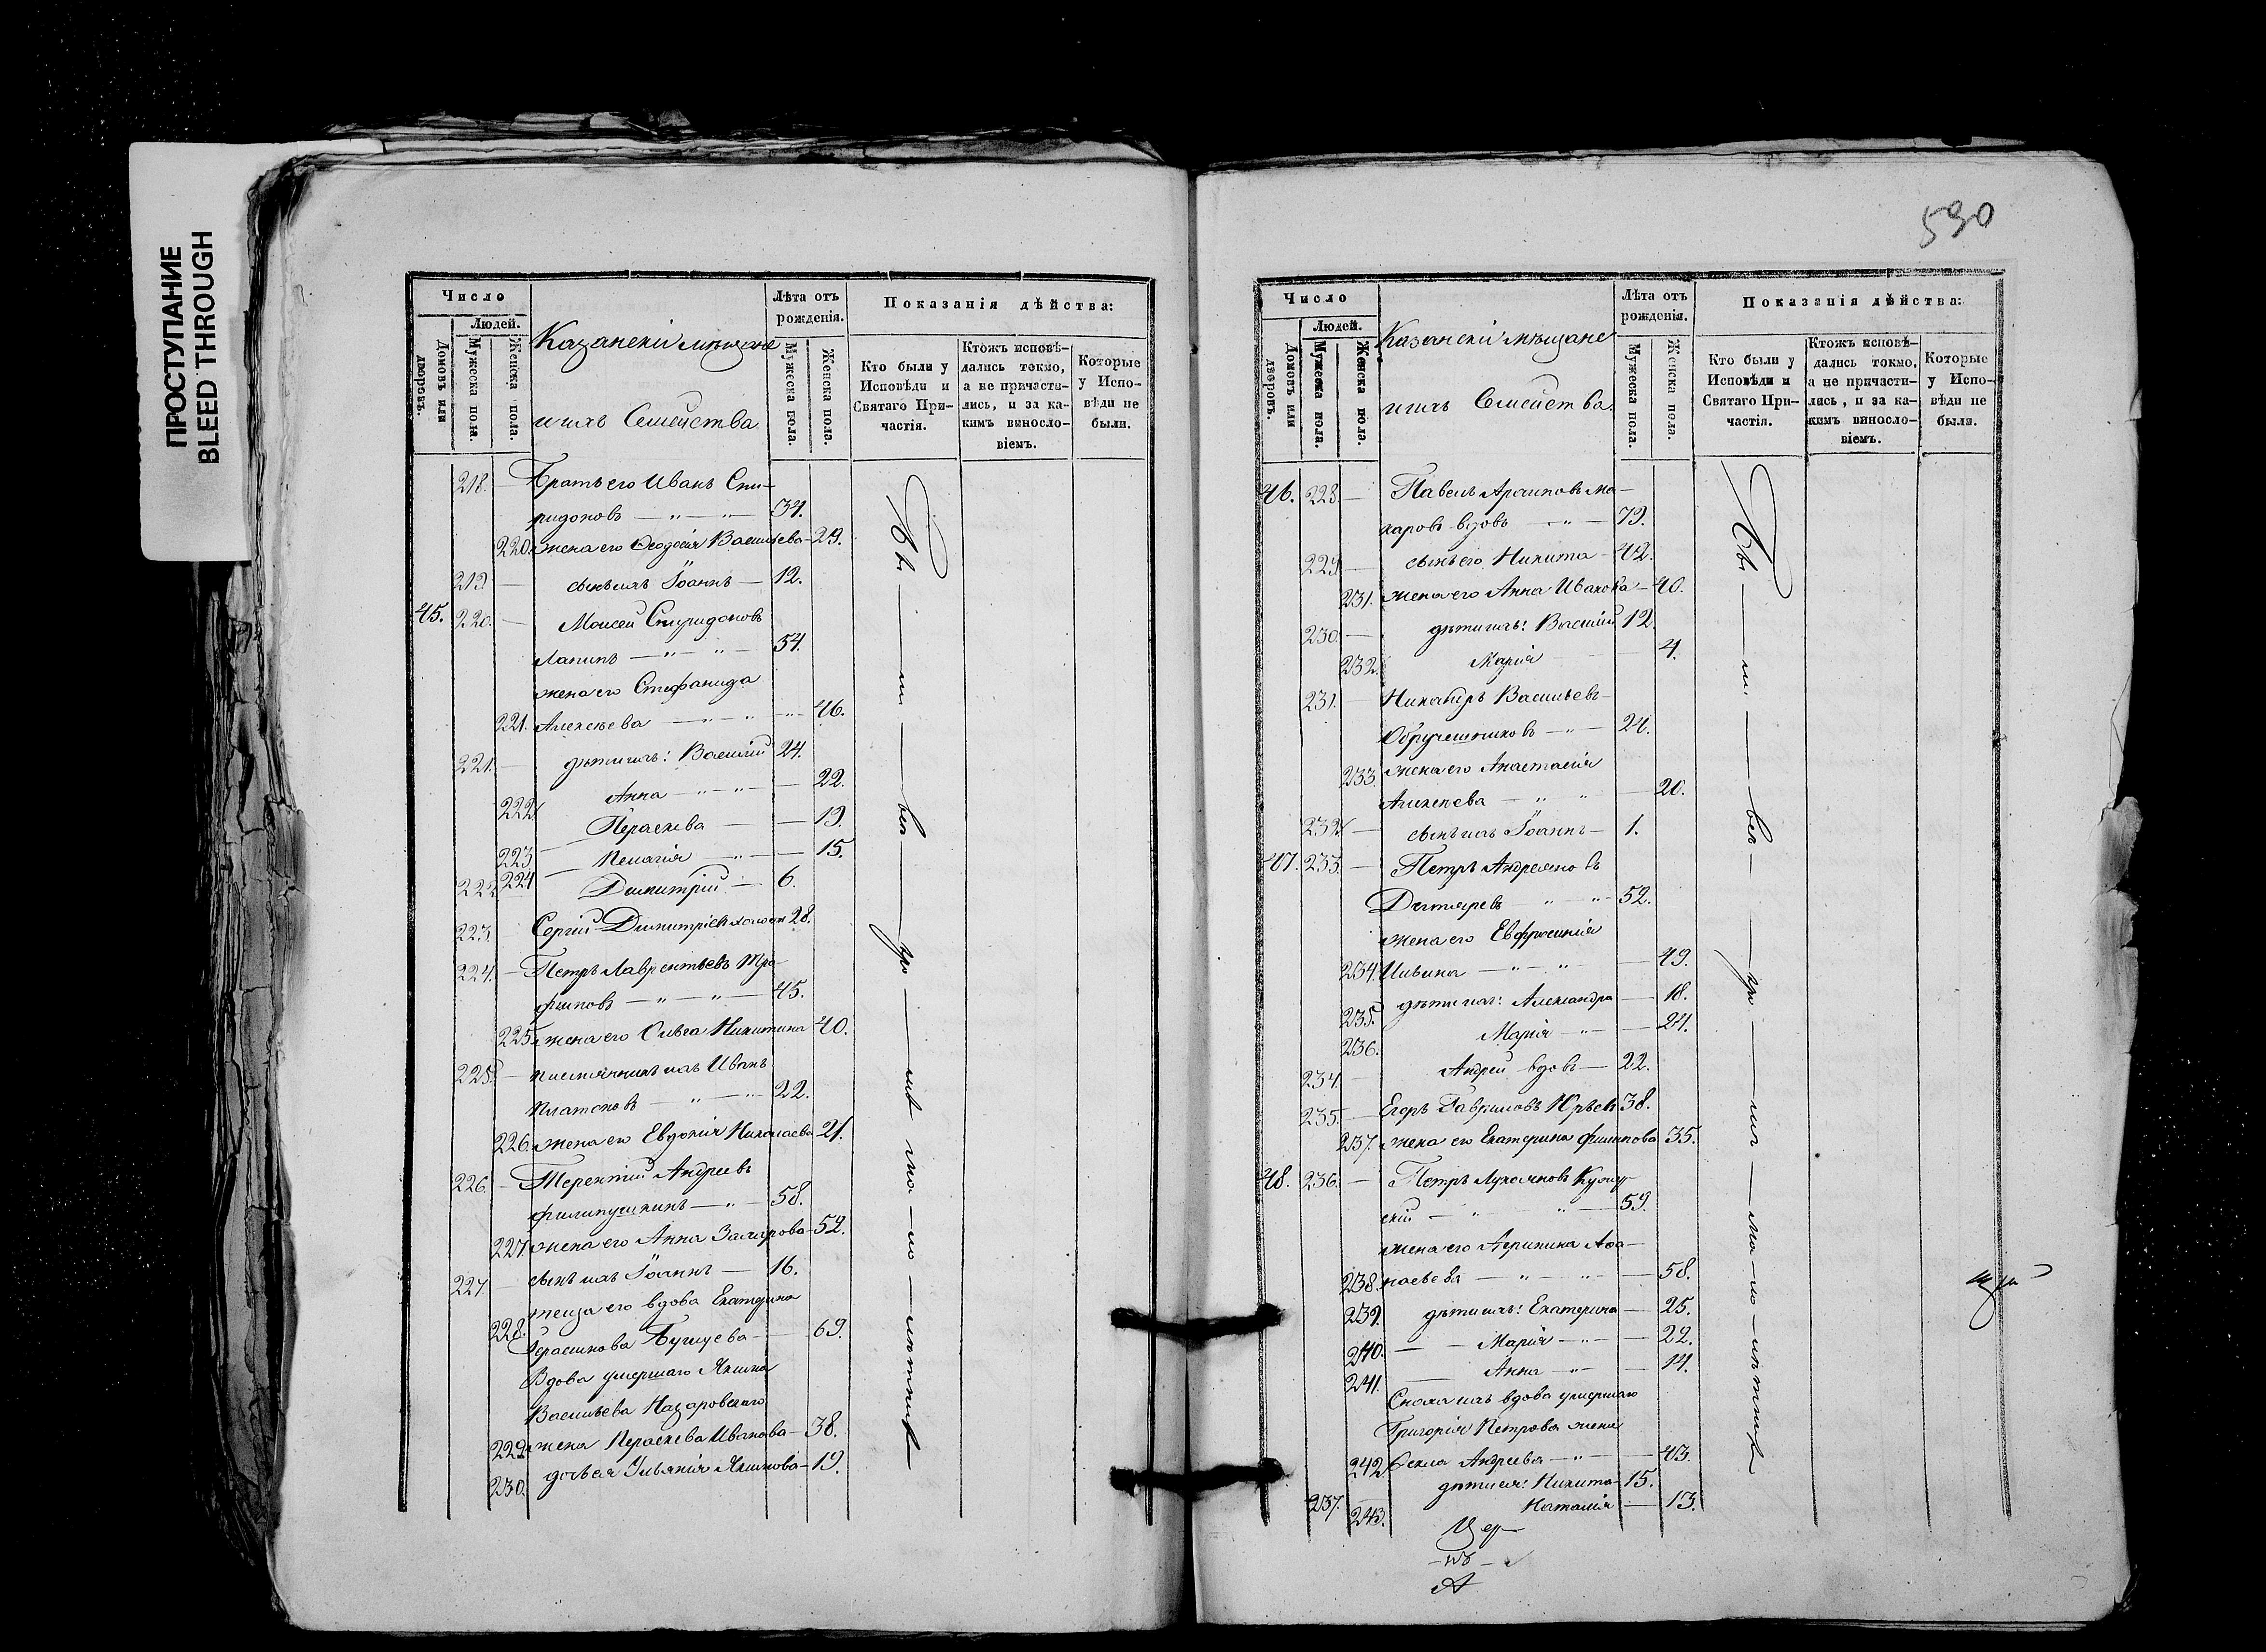 ПРОСТУПАНИЕ
BLEED THROUGH
Число
Людей.
Домовъ или дворовъ.
Мужеска пола.
Женска пола.
Казанскіи мѣщане
и ихъ Семейства
Лѣта отъ рожденія.
Мужеска пола.
Женска пола.
Показанія дѣйства:
Кто были у Исповѣди и Святаго Причастія.
Ктожъ исповѣдались токмо, а не причастились, и за какимъ винословіемъ.
Которые у Исповѣди не были.
218. Братъ его Иванъ Спи-
ридоновъ 34.
220. жена его Ѳеодосія Васильева 29.
219 сынъ ихъ Іоаннъ 12.
45. 220. Моисей Спиридоновъ
Лапинъ 54.
жена его Стефанида
221. Алексѣева 46.
221. дѣти ихъ: Василій 24.
222 Анна 22.
223 Параскева 19.
224 Пелагія 15.
222 Димитрій 6.
223. Сергій Димитріевъ 28.
224. Петръ Лаврентьевъ Тро-
фимовъ 45.
225. жена его Ольга Никитина 40.
225. Иванъ
Платоновъ 22.
226. жена его Евдокія Николаева 21.
226. Терентій Андреевъ
Филипушкинъ 58.
227. жена его Анна Захарова 52.
227. сынъ ихъ Іоаннъ 16.
теща его вдова Екатерина
228. Герасимова 69.
Вдова умершаго Якима
Васильева Назаровскаго
229. жена Параскева Иванова 38.
230. дочь ея Ульянія Якимова 19.
590
Число
Людей.
Домовъ или дворовъ.
Мужеска пола.
Женска пола.
Казанскіи мѣщане
и ихъ Семейства.
Лѣта отъ рожденія.
Мужеска пола.
Женска пола.
Показанія дѣйства:
Кто были у Исповѣди и Святаго Причастія.
Ктожъ исповѣдались токмо, а не причастились, и за какимъ винословіемъ.
Которые у Исповѣди не были.
46. 228. Павелъ Архиповъ Ма-
каровъ вдовъ 79.
229 сынъ его Никита 42.
231. жена его Анна Иванова 40.
230. дѣти ихъ: Василій 12
232. Марія 4.
231. Никандръ Васильевъ
Обручешниковъ 24.
233. жена его Анастасія
Алексѣева 20.
232. сынъ ихъ Іоаннъ 1.
47. 233. Петръ Андреяновъ
Дехтяревъ 52.
жена его Евфросинія
234. Ильина 49.
235. дѣти ихъ: Александра 18.
236. Марія 24.
234. Андрей вдовъ 22.
235. Егоръ Гавриловъ Юрьевъ 38.
237. жена его Екатерина Филипова 35.
48. 236. Петръ Лукьяновъ Кунгур-
скій 59.
жена его Агрипина Афа-
238. насьева 58.
239. дѣти ихъ: Екатерина 25.
240. Марія 22.
241. Анна 14.
Сноха ихъ вдова умершаго
Григорія Петрова жена
242. Ѳекла Андреева 43.
237. дѣти ея: Никита 15.
243. Наталія 13.